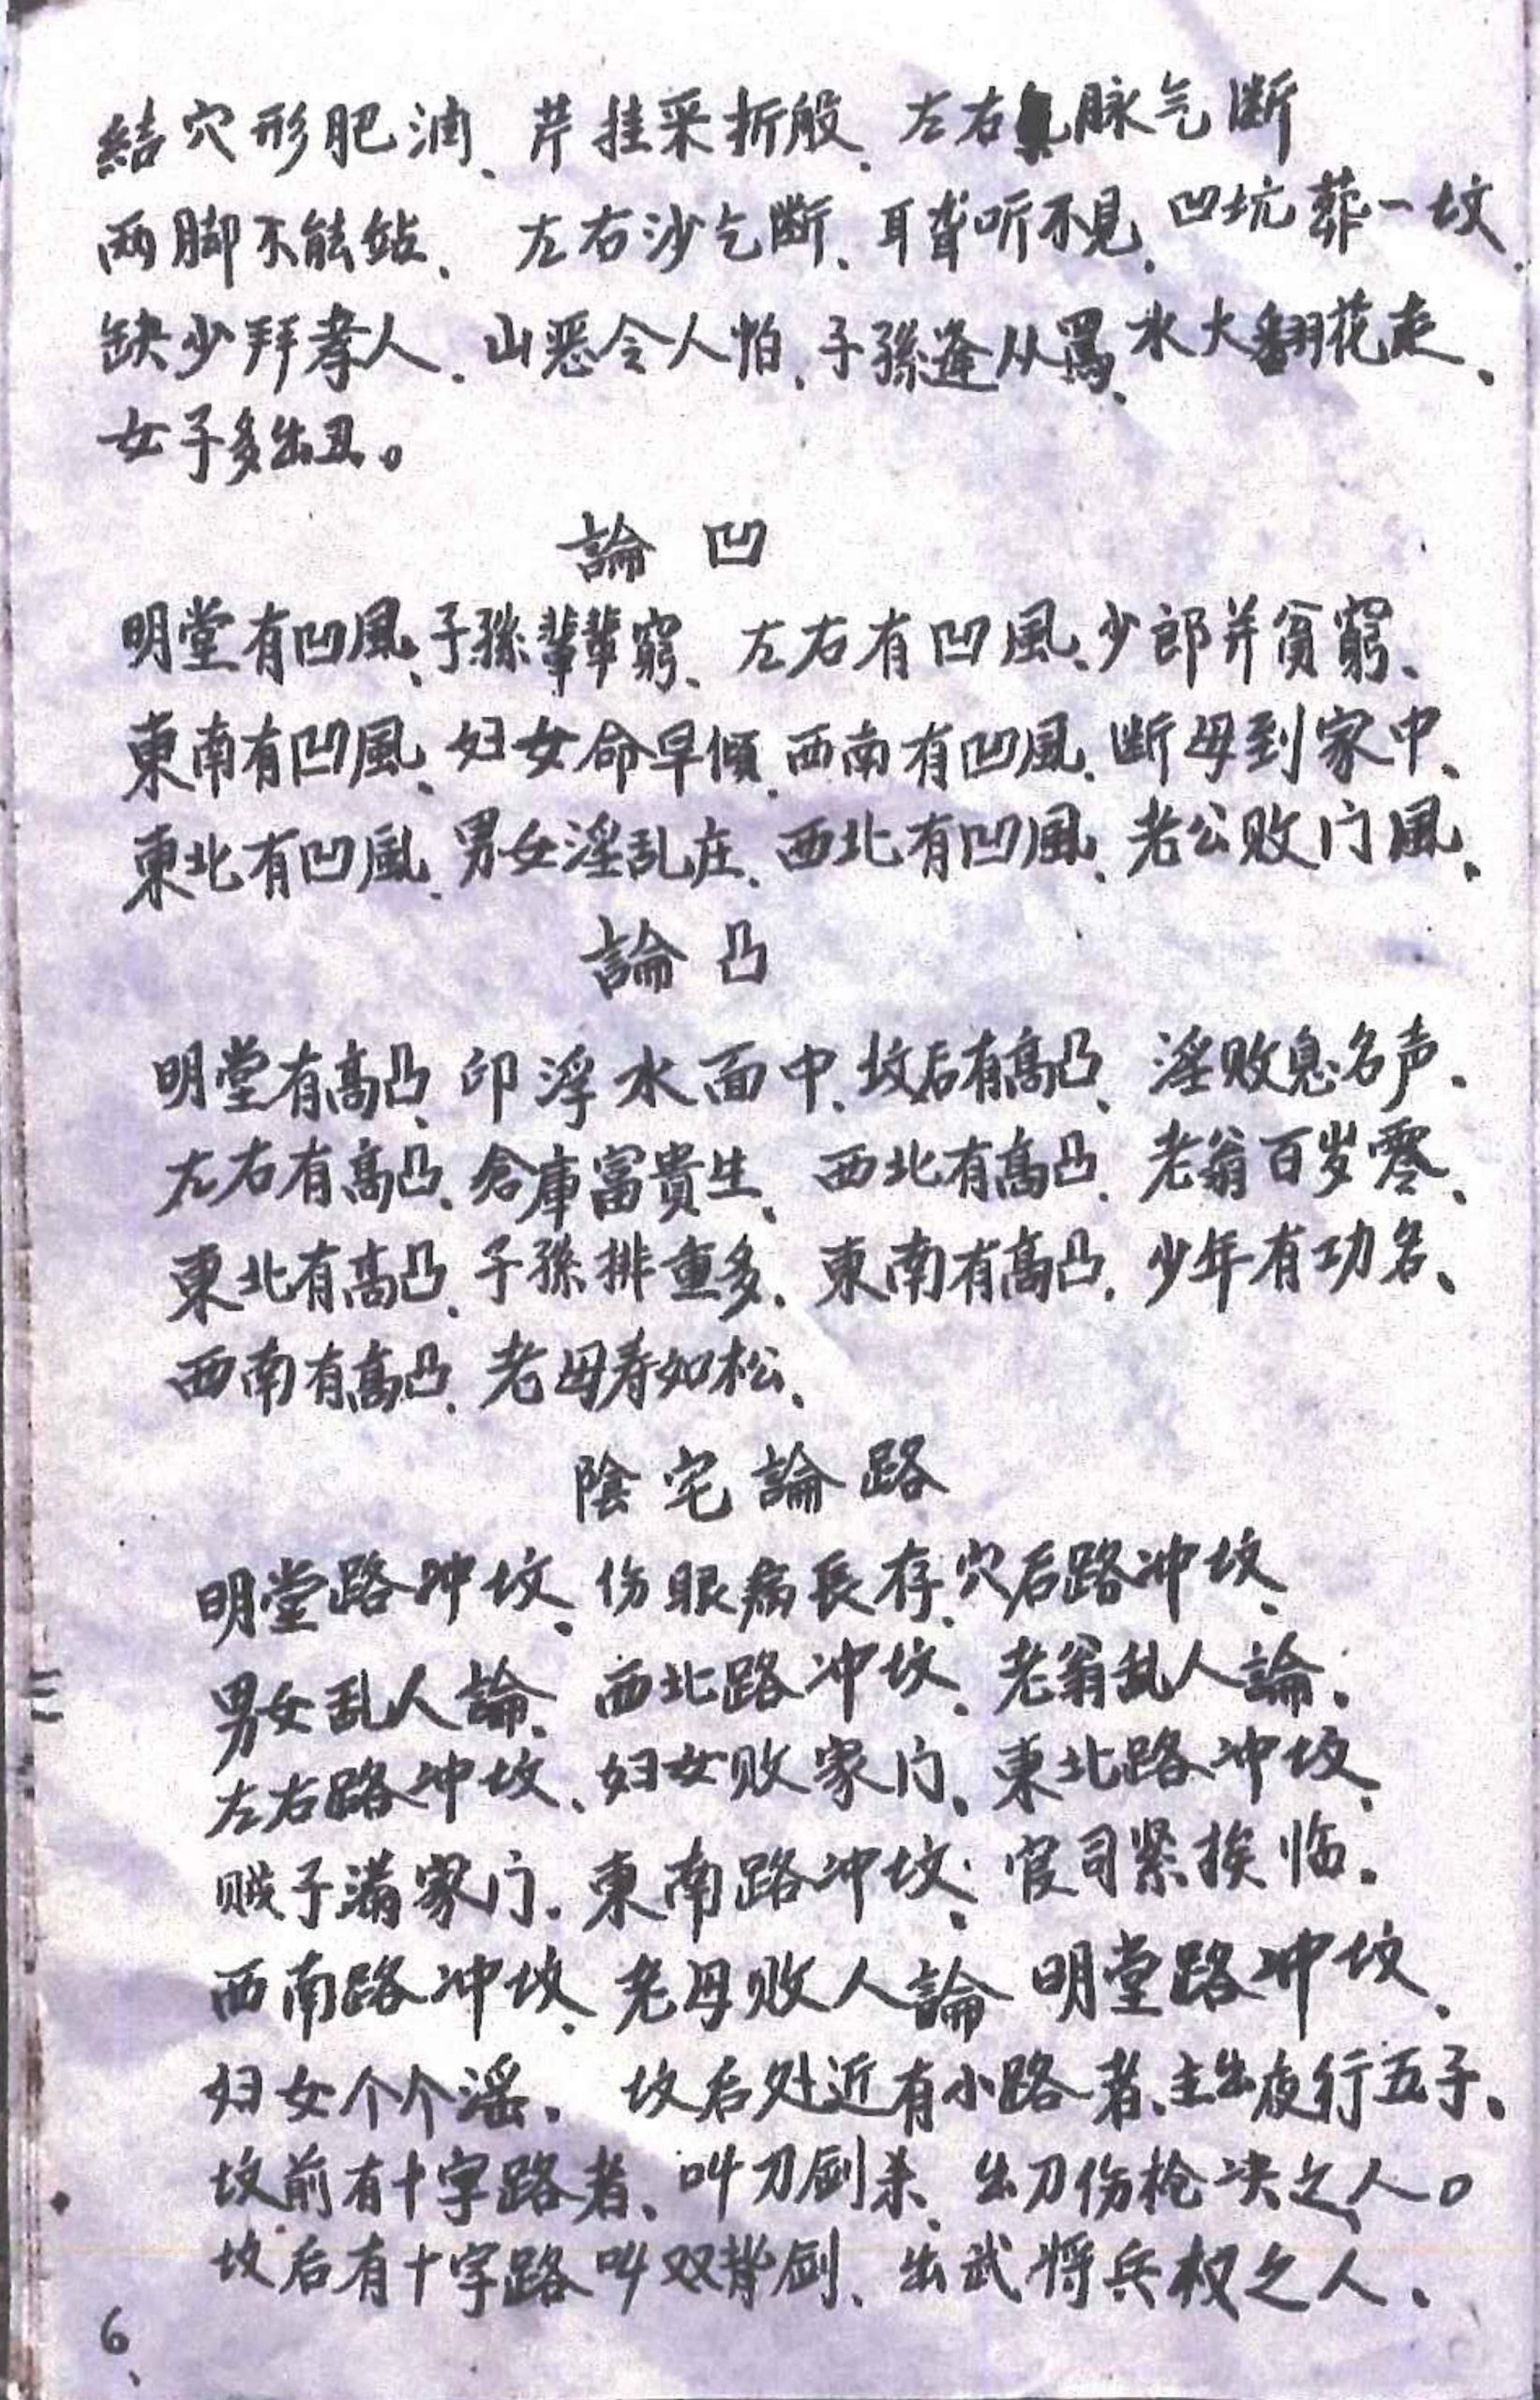 結穴形肥润、芹挂采折般、左右脉气断
两脚不能站、左右沙气断、耳聋听不见、凹坑葬一坟、
缺少拜孝人、山恶令人怕、子孫逢从罵、水大翻花走、
女子多出丑。
論凹
明堂有凹風、子孫輩輩窮、左右有凹風、少郎并貧窮、
東南有凹風、妇女命早傾、西南有凹風、断母到家中、
東北有凹風、男女淫乱庄、西北有凹風、老公败门風、
論凸
明堂有高凸、印浮水面中、坟后有高凸、淫败息名声、
左右有高凸、倉庫富貴生、西北有高凸、老翁百岁零、
東北有高凸、子孫排重多、東南有高凸、少年有功名、
西南有高凸、老母寿如松、
陰宅論路
明堂路冲坟、伤眼病長存、穴后路冲坟、
男女乱人論、西北路冲坟、老翁乱人論。
左右路冲坟、妇女败家门、東北路冲坟、
贼子满家门。東南路冲坟、官司紧挨临。
西南路冲坟、老母败人論 明堂路冲坟、
妇女个个滛。坟后处近有小路者、主出夜行五子。
坟前有十字路者、叫刀剑杀、出刀伤枪决之人。
坟后有十字路叫双背剑、出武将兵权之人。
6、